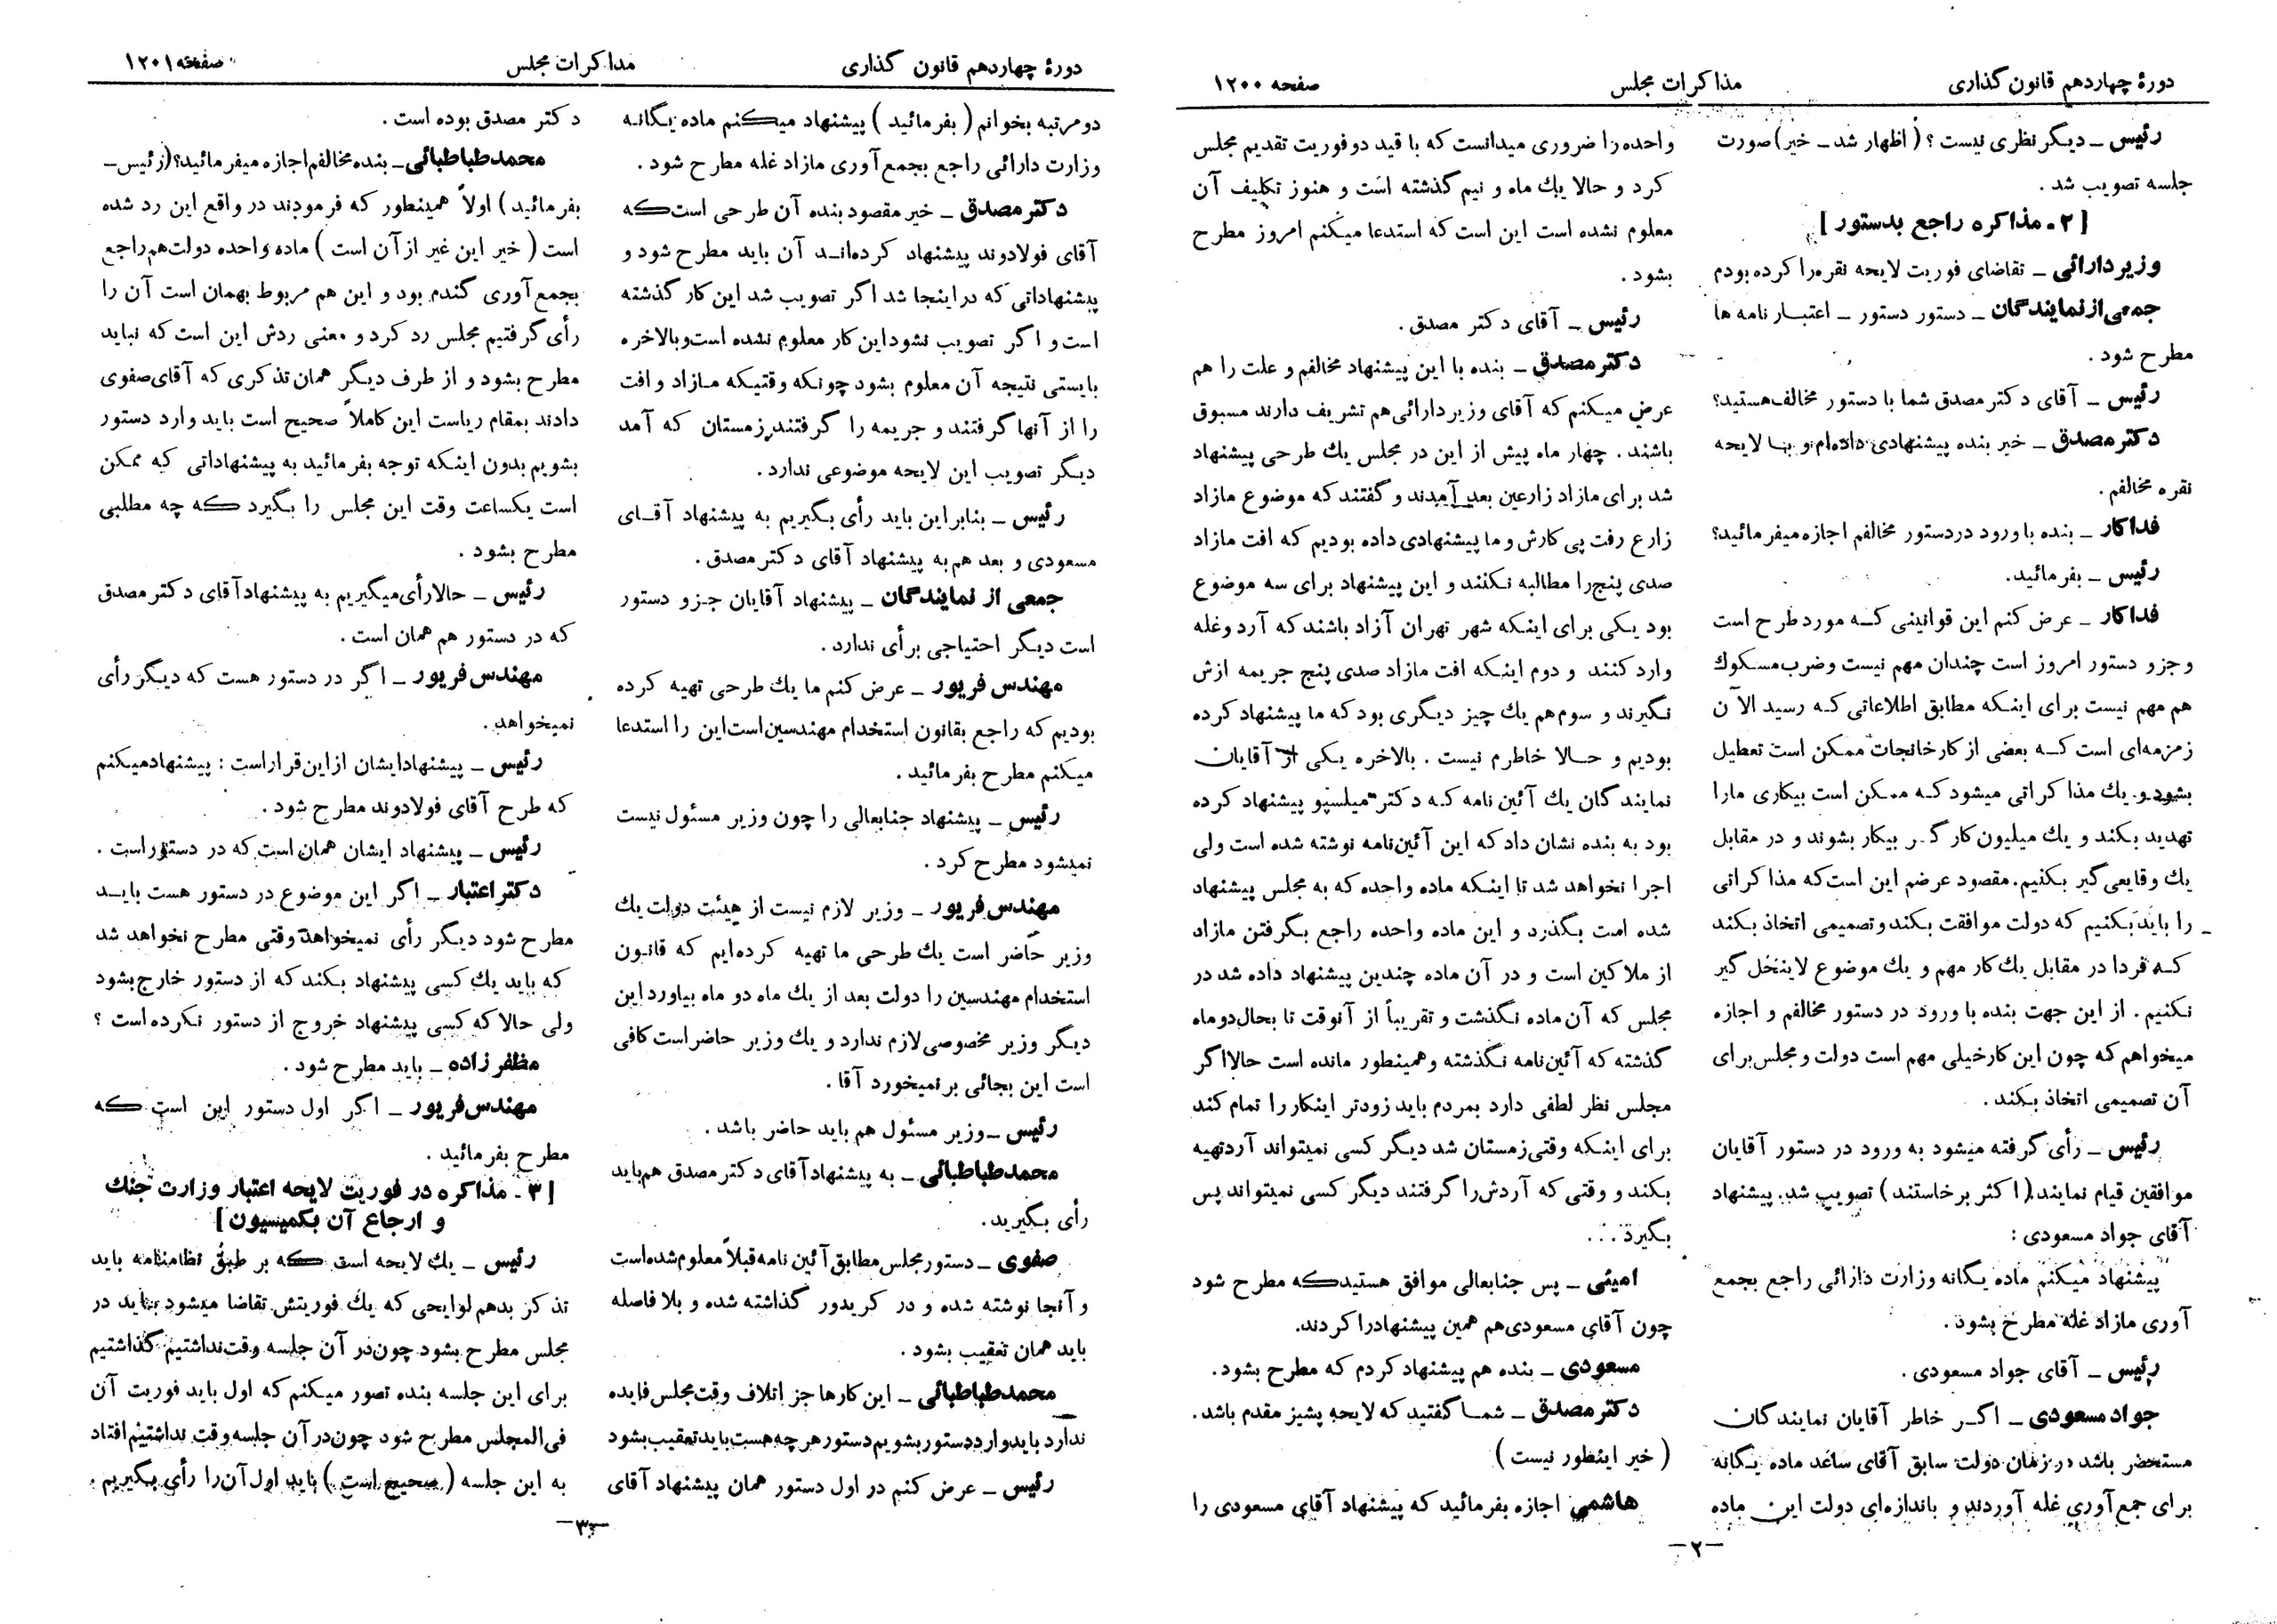 دورۀ چهاردهم قانون گذاری
مذاکرات مجلس
صفحه ۱۲۰۰
رئیس ـ دیگر نظری نیست ؟ ( اظهار شد ـ خیر ) صورت
جلسه تصویب شد .
[ ۲ ـ مذاکره راجع بدستور ]
وزیر دارائی ـ تقاضای فوریت لایحه نقره را کرده بودم
جمعی از نمایندگان ـ دستور دستور ـ اعتبار نامه ها
مطرح شود .
رئیس ـ آقای دکتر مصدق شما با دستور مخالف هستید؟
دکتر مصدق ـ خیر بنده پیشنهادی داده‌ام و با لایحه
نقره مخالفم .
فداکار ـ بنده با ورود در دستور مخالفم اجازه میفرمائید؟
رئیس ـ بفرمائید.
فداکار ـ عرض کنم این قوانینی که مورد طرح است
و جزو دستور امروز است چندان مهم نیست و ضرب مسکوك
هم مهم نیست برای اینکه مطابق اطلاعاتی که رسید الآن
زمزمه‌ای است که بعضی از کارخانجات ممکن است تعطیل
بشود و یك مذاکراتی میشود که ممکن است بیکاری ما را
تهدید بکند و یك میلیون کارگر بیکار بشوند و در مقابل
یك وقایعی گیر بکنیم. مقصود عرضم این است که مذاکراتی
را باید بکنیم که دولت موافقت بکند و تصمیمی اتخاذ بکند
که فردا در مقابل یك کار مهم و یك موضوع لاینحل گیر
نکنیم . از این جهت بنده با ورود در دستور مخالفم و اجازه
میخواهم که چون این کار خیلی مهم است دولت و مجلس برای
آن تصمیمی اتخاذ بکند .
رئیس ـ رأی گرفته میشود به ورود در دستور آقایان
موافقین قیام نمایند ( اکثر برخاستند ) تصویب شد. پیشنهاد
آقای جواد مسعودی :
پیشنهاد میکنم ماده یگانه وزارت دارائی راجع بجمع
آوری مازاد غله مطرح بشود .
رئیس ـ آقای جواد مسعودی .
جواد مسعودی ـ اگر خاطر آقایان نمایندگان
مستحضر باشد در زمان دولت سابق آقای ساعد ماده یگانه
برای جمع آوری غله آوردند و باندازه‌ای دولت این ماده
واحده را ضروری میدانست که با قید دو فوریت تقدیم مجلس
کرد و حالا یك ماه و نیم گذشته است و هنوز تکلیف آن
معلوم نشده است این است که استدعا میکنم امروز مطرح
بشود .
رئیس ـ آقای دکتر مصدق .
دکتر مصدق ـ بنده با این پیشنهاد مخالفم و علت را هم
عرض میکنم که آقای وزیر دارائی هم تشریف دارند مسبوق
باشند . چهار ماه پیش از این در مجلس یك طرحی پیشنهاد
شد برای مازاد زارعین بعد آمدند و گفتند که موضوع مازاد
زارع رفت پی کارش و ما پیشنهادی داده بودیم که افت مازاد
صدی پنج را مطالبه نکنند و این پیشنهاد برای سه موضوع
بود یکی برای اینکه شهر تهران آزاد باشند که آرد و غله
وارد کنند و دوم اینکه افت مازاد صدی پنج جریمه ازش
نگیرند و سوم هم یك چیز دیگری بود که ما پیشنهاد کرده
بودیم و حالا خاطرم نیست . بالاخره یکی از آقایان
نمایندگان یك آئین نامه که دکتر میلسپو پیشنهاد کرده
بود به بنده نشان داد که این آئین‌نامه نوشته شده است ولی
اجرا نخواهد شد تا اینکه ماده واحده که به مجلس پیشنهاد
شده است بگذرد و این ماده واحده راجع بگرفتن مازاد
از ملاکین است و در آن ماده چندین پیشنهاد داده شد در
مجلس که آن ماده نگذشت و تقریباً از آنوقت تا بحال دو ماه
گذشته که آئین‌نامه نگذشته و همینطور مانده است حالا اگر
مجلس نظر لطفی دارد بمردم باید زودتر اینکار را تمام کند
برای اینکه وقتی زمستان شد دیگر کسی نمیتواند آرد تهیه
بکند و وقتی که آردش را گرفتند دیگر کسی نمیتواند پس
بگیرد . . .
امینی ـ پس جنابعالی موافق هستید که مطرح شود
چون آقای مسعودی هم همین پیشنهاد را کردند.
مسعودی ـ بنده هم پیشنهاد کردم که مطرح بشود .
دکتر مصدق ـ شما گفتید که لایحه پشیز مقدم باشد .
( خیر اینطور نیست )
هاشمی اجازه بفرمائید که پیشنهاد آقای مسعودی را
ـ۲ـ
دورۀ چهاردهم قانون گذاری
مذاکرات مجلس
صفحه ۱۲۰۱
دو مرتبه بخوانم ( بفرمائید ) پیشنهاد میکنم ماده یگانه
وزارت دارائی راجع بجمع آوری مازاد غله مطرح شود .
دکتر مصدق ـ خیر مقصود بنده آن طرحی است که
آقای فولادوند پیشنهاد کرده‌اند آن باید مطرح شود و
پیشنهاداتی که در اینجا شد اگر تصویب شد این کار گذشته
است و اگر تصویب نشود این کار معلوم نشده است و بالاخره
بایستی نتیجه آن معلوم بشود چونکه وقتیکه مازاد و افت
را از آنها گرفتند و جریمه را گرفتند زمستان که آمد
دیگر تصویب این لایحه موضوعی ندارد .
رئیس ـ بنابراین باید رأی بگیریم به پیشنهاد آقای
مسعودی و بعد هم به پیشنهاد آقای دکتر مصدق .
جمعی از نمایندگان ـ پیشنهاد آقایان جزو دستور
است دیگر احتیاجی برأی ندارد .
مهندس فریور ـ عرض کنم ما یك طرحی تهیه کرده
بودیم که راجع بقانون استخدام مهندسین است این را استدعا
میکنم مطرح بفرمائید .
رئیس ـ پیشنهاد جنابعالی را چون وزیر مسئول نیست
نمیشود مطرح کرد .
مهندس فریور ـ وزیر لازم نیست از هیئت دولت یك
وزیر حاضر است یك طرحی ما تهیه کرده‌ایم که قانون
استخدام مهندسین را دولت بعد از یك ماه دو ماه بیاورد این
دیگر وزیر مخصوصی لازم ندارد و یك وزیر حاضر است کافی
است این بجائی بر نمیخورد آقا .
رئیس ـ وزیر مسئول هم باید حاضر باشد .
محمد طباطبائی ـ به پیشنهاد آقای دکتر مصدق هم باید
رأی بگیرید .
صفوی ـ دستور مجلس مطابق آئین نامه قبلاً معلوم شده است
و آنجا نوشته شده و در کریدور گذاشته شده و بلا فاصله
باید همان تعقیب بشود .
محمد طباطبائی ـ این کارها جز اتلاف وقت مجلس فایده
ندارد باید وارد دستور بشویم دستور هر چه هست باید تعقیب بشود
رئیس ـ عرض کنم در اول دستور همان پیشنهاد آقای
دکتر مصدق بوده است .
محمد طباطبائی ـ بنده مخالفم اجازه میفرمائید؟ (رئیس ـ
بفرمائید ) اولاً همینطور که فرمودند در واقع این رد شده
است ( خیر این غیر از آن است ) ماده واحده دولت هم راجع
بجمع آوری گندم بود و این هم مربوط بهمان است آن را
رأی گرفتیم مجلس رد کرد و معنی ردش این است که نباید
مطرح بشود و از طرف دیگر همان تذکری که آقای صفوی
دادند بمقام ریاست این کاملاً صحیح است باید وارد دستور
بشویم بدون اینکه توجه بفرمائید به پیشنهاداتی که ممکن
است یکساعت وقت این مجلس را بگیرد که چه مطلبی
مطرح بشود .
رئیس ـ حالا رأی میگیریم به پیشنهاد آقای دکتر مصدق
که در دستور هم همان است .
مهندس فریور ـ اگر در دستور هست که دیگر رأی
نمیخواهد .
رئیس ـ پیشنهاد ایشان از این قرار است : پیشنهاد میکنم
که طرح آقای فولادوند مطرح شود .
رئیس ـ پیشنهاد ایشان همان است که در دستور است .
دکتر اعتبار ـ اگر این موضوع در دستور هست باید
مطرح شود دیگر رأی نمیخواهد وقتی مطرح نخواهد شد
که باید یك کسی پیشنهاد بکند که از دستور خارج بشود
ولی حالا که کسی پیشنهاد خروج از دستور نکرده است ؟
مظفر زاده ـ باید مطرح شود .
مهندس فریور ـ اگر اول دستور این است که
مطرح بفرمائید .
[ ۳ ـ مذاکره در فوریت لایحه اعتبار وزارت جنك
و ارجاع آن بکمیسیون ]
رئیس ـ یك لایحه است که بر طبق نظامنامه باید
تذکر بدهم لوایحی که یك فوریتش تقاضا میشود بیاید در
مجلس مطرح بشود چون در آن جلسه وقت نداشتیم گذاشتیم
برای این جلسه بنده تصور میکنم که اول باید فوریت آن
فی المجلس مطرح شود چون در آن جلسه وقت نداشتیم افتاد
به این جلسه ( صحیح است ) باید اول آن را رأی بگیریم .
ـ۳ـ